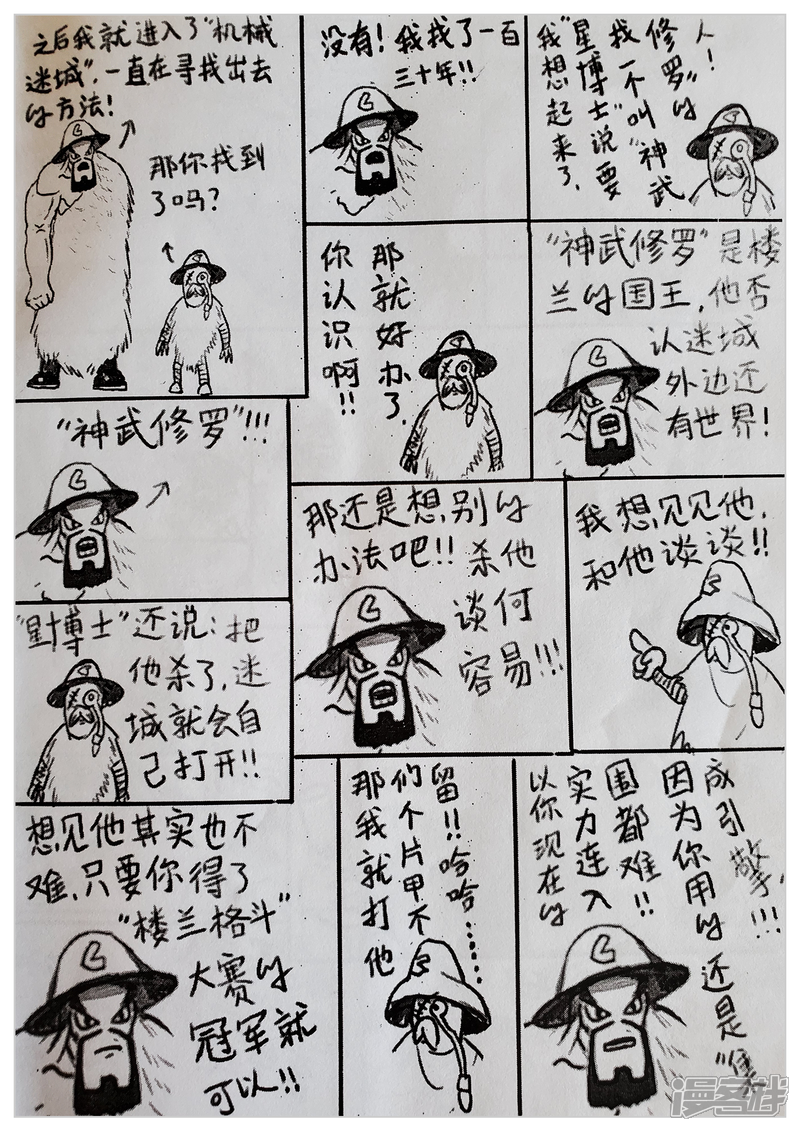 之后我就进入了"机械
迷城",一直在寻找出去
的方法!
那你找到
了吗?
没有!我找了一百
三十年!!
我想起来了,
"星博士"说要
找一个叫"神武
修罗"的
人!
"神武修罗"!!!
那就好办了,
你认识啊!!
"神武修罗"是楼
兰的国王,他否
认迷城
外边还
有世界!
"星博士"还说:把
他杀了,迷
城就会自
己打开!!
那还是想别的
办法吧!!杀他
谈何
容易!!!
我想见见他,
和他谈谈!!
想见他其实也不
难,只要你得了
"楼兰格斗"
大赛的
冠军就
可以!!
那我就打他
们个片甲不
留!!哈哈……
以你现在的
实力连入
围都难!!
因为你用的
还是"
成引擎,!!!
漫客栈